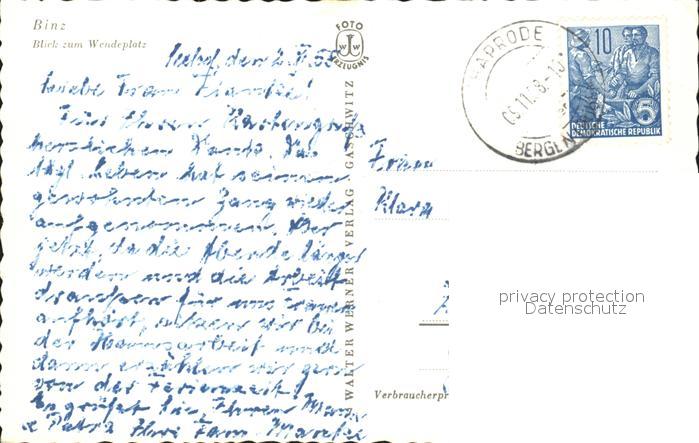 Binz
Blick zum Wendeplatz
FOTO
ERZEUGNIS
Seehof, den 2. XI. 55
Liebe Frau
Für Ihren Kartengruß
herzlichen Dank. Das
tägl. Leben hat seinen
gewohnten Gang wieder
aufgenommen. Aber
jetzt, da die Abende länger
werden und die Arbeit
draußen für uns Frauen
aufhört, sitzen wir bei
der Hausarbeit und
dann erzählen wir gern
von der Ferienzeit!
Es grüßt Sie, Ihren Mann
u. Petra Ihre Fam.
WALTER WERNER VERLAG GASCHWITZ
Frau
Klara
Verbraucherpr
BERGEN
10
5
DEUTSCHE
DEMOKRATISCHE REPUBLIK
privacy protection
Datenschutz